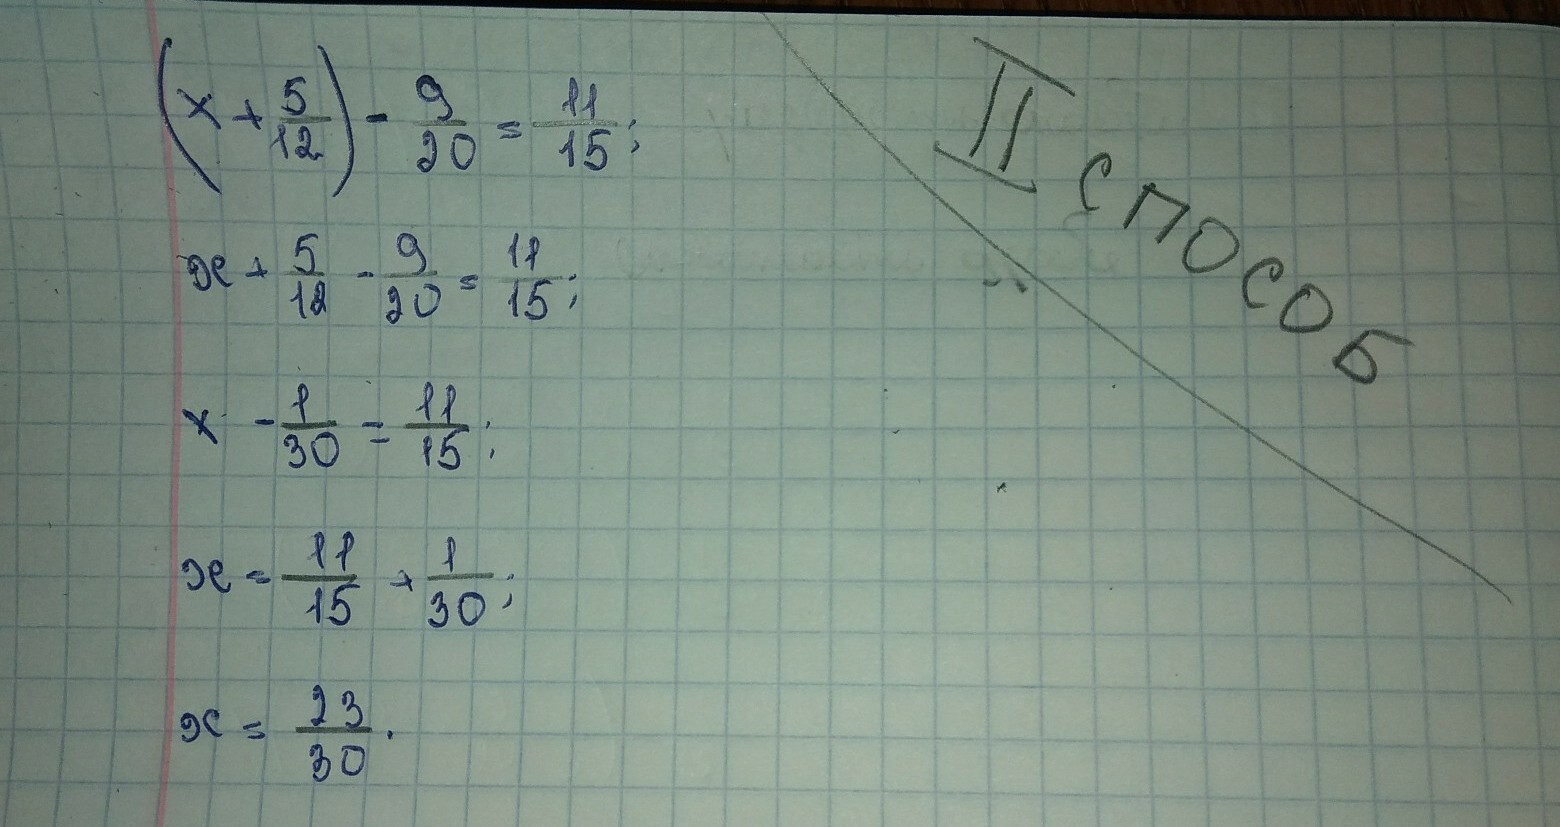 (x + 5/12) - 9/20 = 11/15;
x + 5/12 - 9/20 = 11/15;
x - 1/30 = 11/15;
x = 11/15 + 1/30;
x = 23/30.
II способ